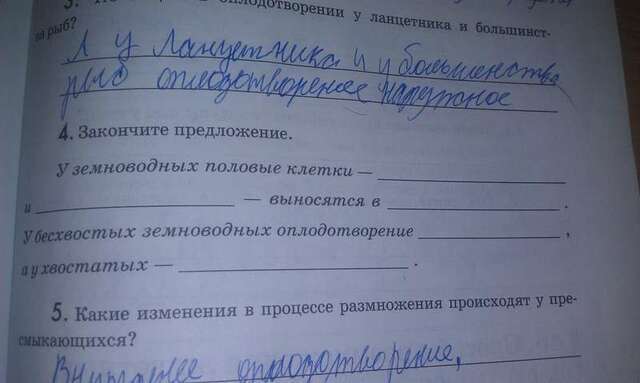 оплодотворении у ланцетника и большинст-
ва рыб?
У ланцетника и у большенства
рыб оплодотворение наружное
4. Закончите предложение.
У земноводных половые клетки —
и — выносятся в .
У бесхвостых земноводных оплодотворение ,
а у хвостатых — .
5. Какие изменения в процессе размножения происходят у пре-
смыкающихся?
Внутренее оплодотворение,